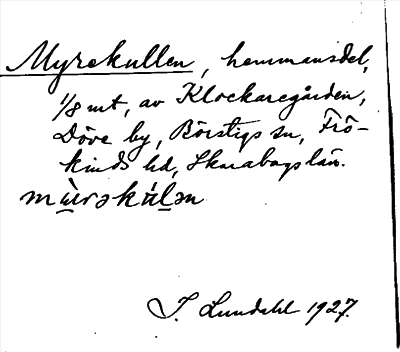 Myrekullen, hemmansdel,
1/8 mt, av Klockaregården,
Döve by, Börstigs sn, Frö-
kinds hd, Skarabogs län.
mùrəkúlən
I. Lundahl 1927.